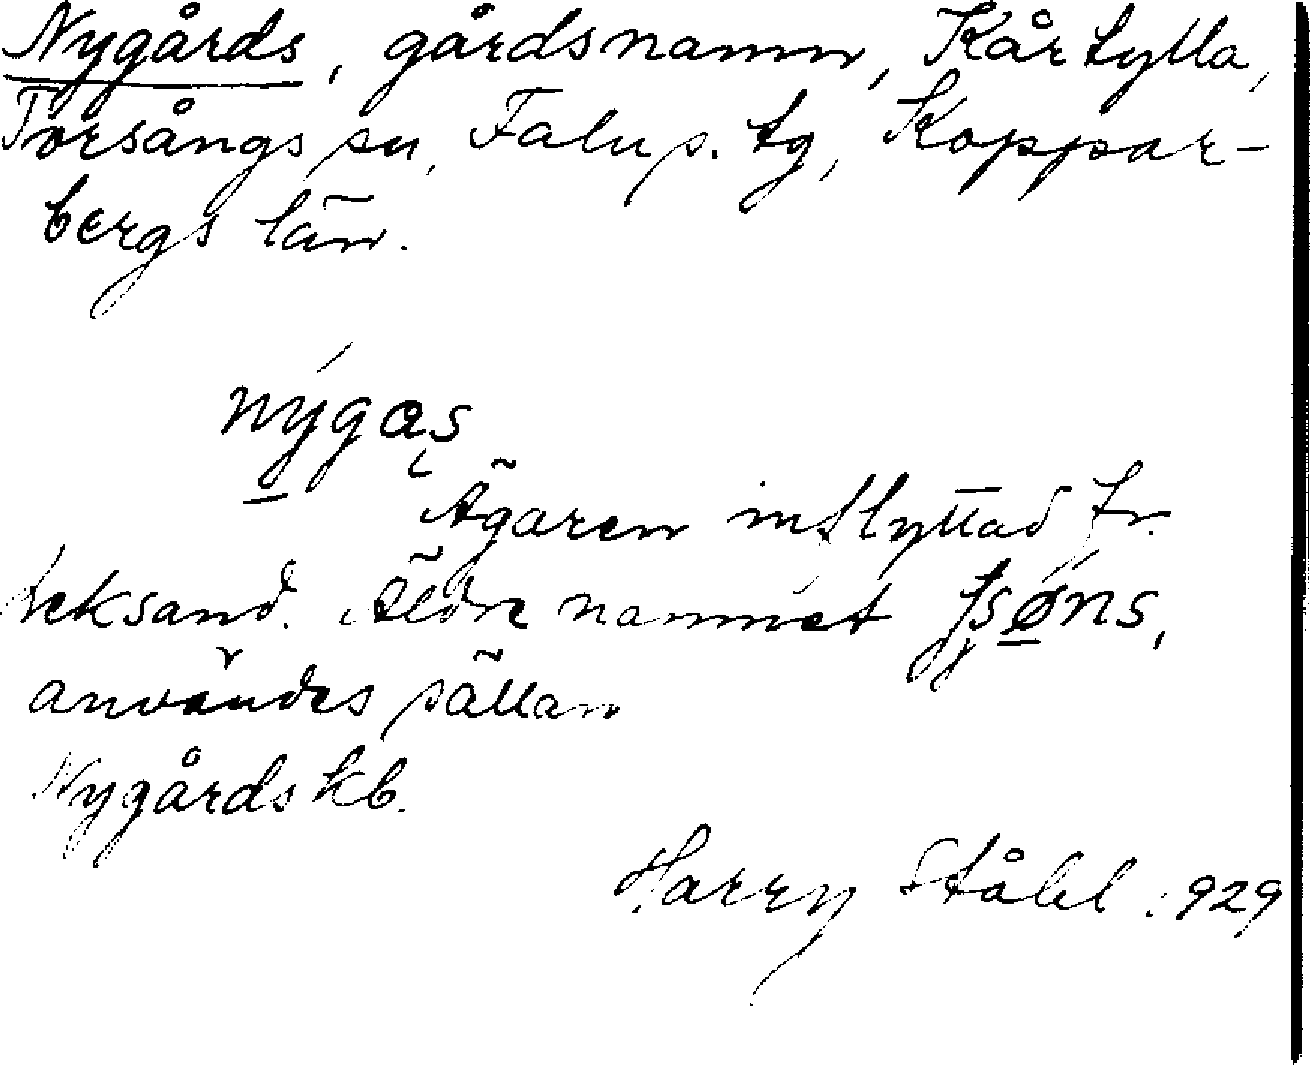 Nygårds, gårdsnamn, Kårtylla,
Torsångs sn, Falu s. tg, Koppar-
bergs län.
nýgas̨
Ägaren inflyttad fr.
Leksand. Äldre namnet
användes sällan
Nygårds kb.
Harry Ståhl 1929